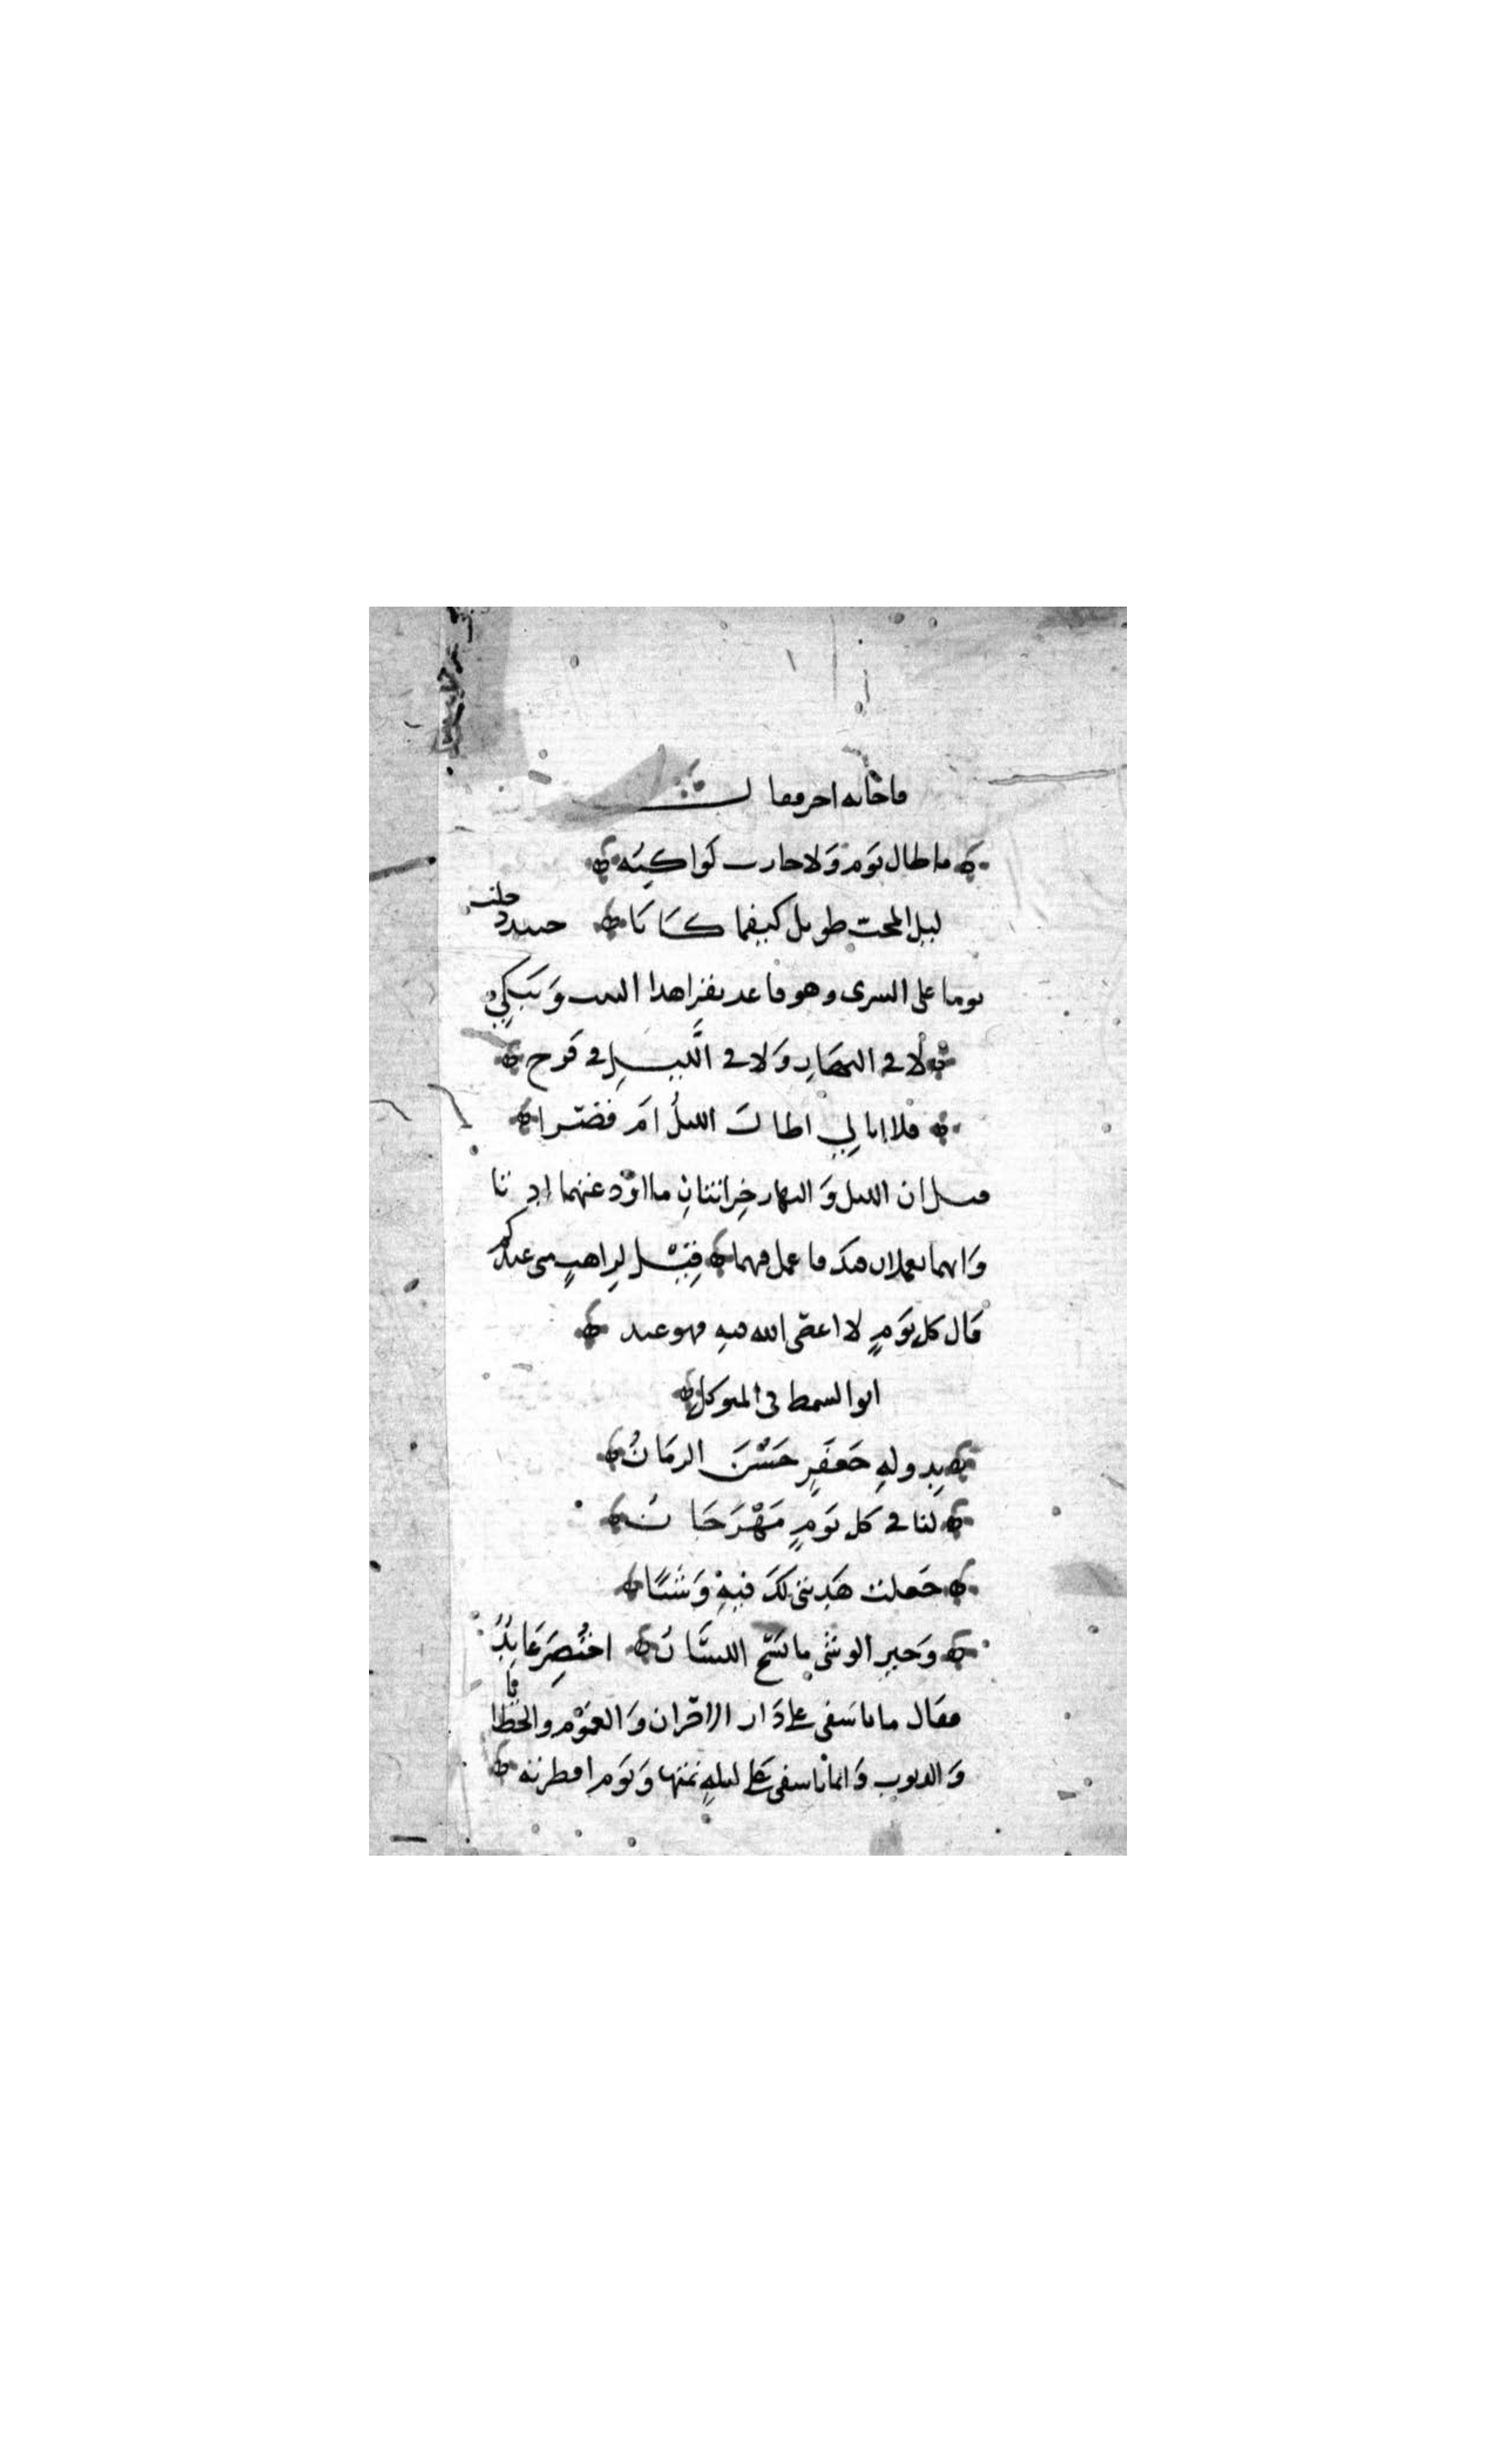 فاجابه اخر فقال
ما طال يوم ولا حارت كواكبه
ليل المحب طويل كيفما كانا جنيد دخلت
يوما على السرى وهو قاعد يقرا هذا البيت وَيَبكي
لا في النهَارِ وَلا في اللَّيلِ لي فَرح
فلا ابالي اطالَ الليلُ امَ قصّرا
قيل ان الليل وَ النهار خِزانتانِ ما اودعتهما ادتا
وَانهما يعملان فيك فاعمل فيهما قِيْلَ لِبراهيم متى عيدكم
قَال كل يَومٍ لا اعصى الله فيهِ فهو عيد
ابو السمط في المتوكل
بِدولهِ جَعفَرٍ حَسُنَ الزمَانُ
لنا في كل يَومٍ مَهْرَجَانُ
جَعلت هَديتى لكَ فيهِ وَشيًا
وَخير الوشى ما نسَج اللسَانُ احْتُضِرَ عَابِدٌ
فقال ما تاسفى على دَار الاحزان وَ الغموْم والخطايا
وَ الذنوب وَ انما تاسفى عَلى ليلهٍ نمتها وَ يَوم افطرته